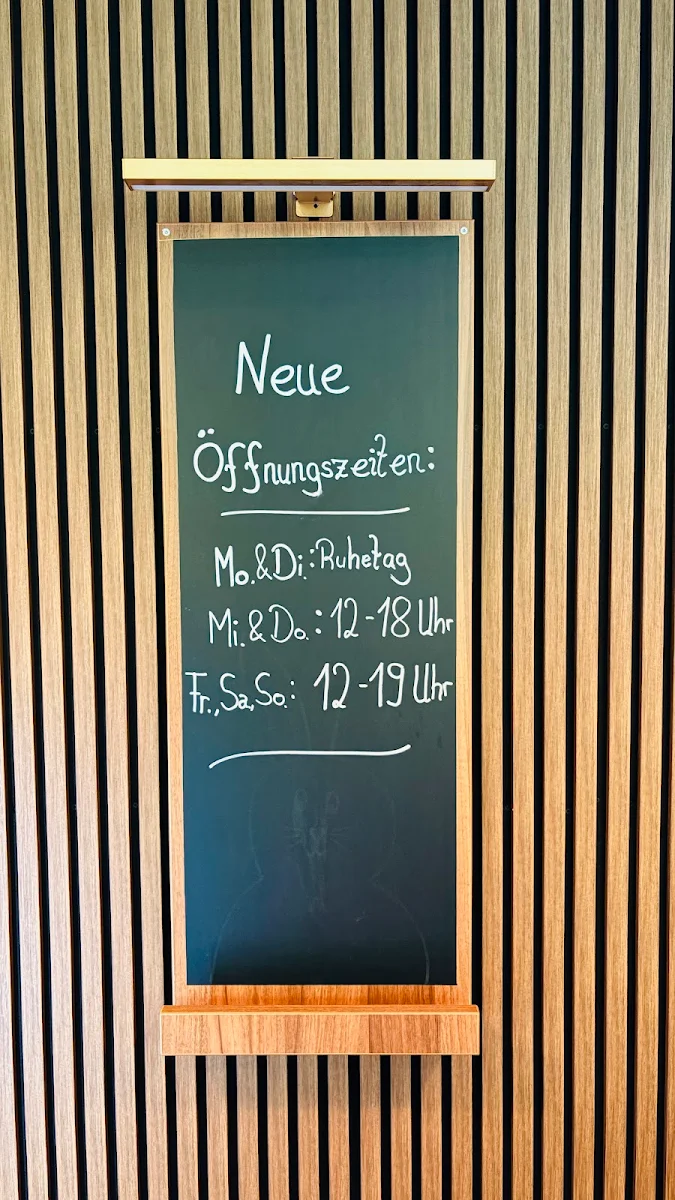 Neue
Öffnungszeiten:
Mo.&Di.:Ruhetag
Mi.&Do.: 12-18 Uhr
Fr.,Sa,So.: 12-19 Uhr